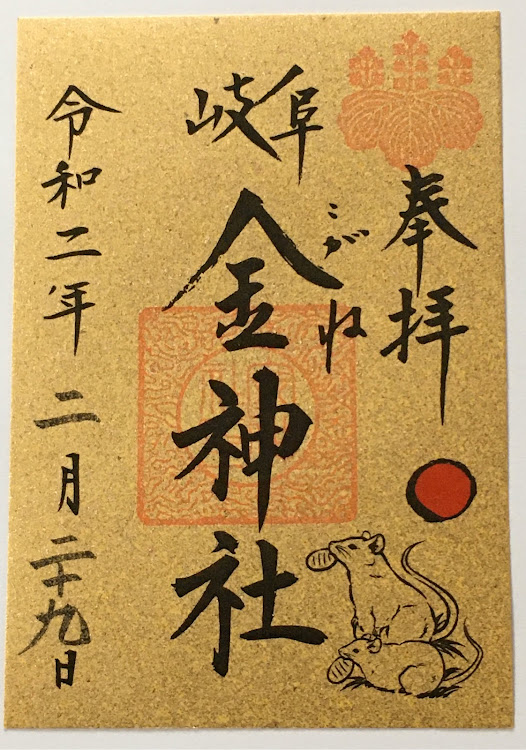 奉拝
岐阜
こがね
金神社
令和二年 二月二十九日